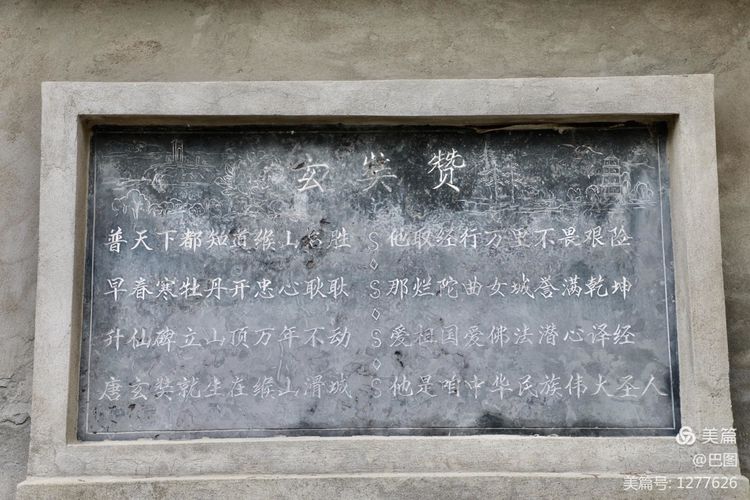 玄奘赞
普天下都知道缑山名胜 他取经行万里不畏艰险
早春寒牡丹开忠心耿耿 那烂陀曲女城誉满乾坤
升仙碑立山顶万年不动 爱祖国爱佛法潜心泽经
唐玄奘就坐在缑山滑城 他是咱中华民族伟大圣人
美篇
@巴图
美篇号: 1277626